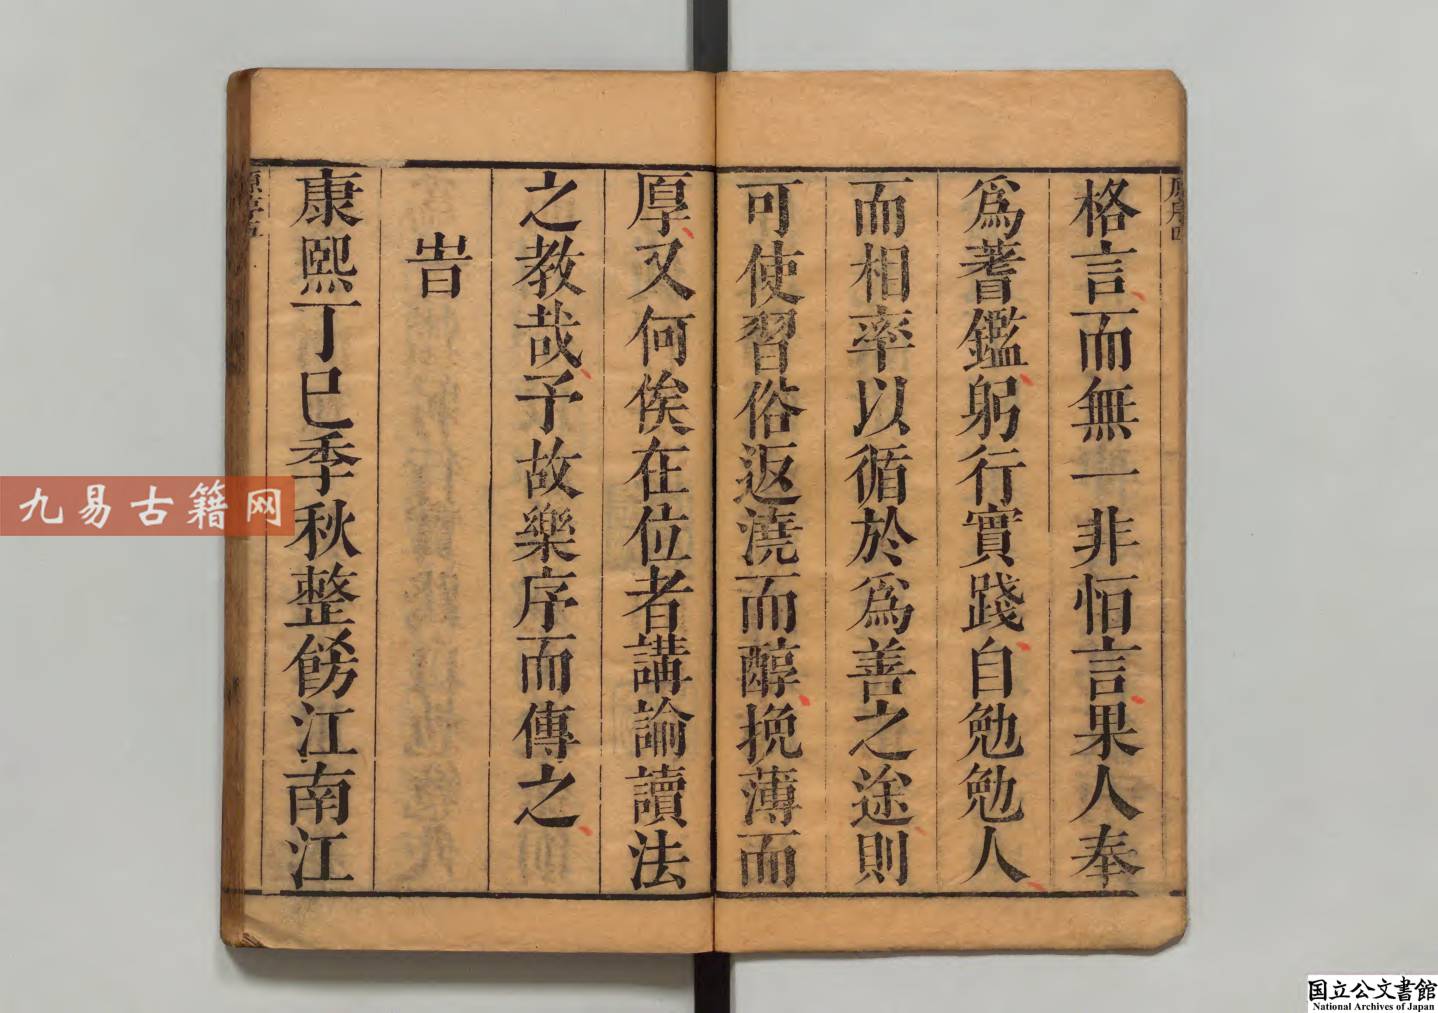 格言而無一非怕言果人奉
為蓍鑑躬行實踐自勉勉人
而相率以循於為善之途則
可使習俗返澆而醇挽薄而
厚又何俟在位者講論讀法
之教哉予故樂序而傳之
旹
康熙丁巳季秋整飭江南江
原序四
原序五
九易古籍网
国立公文書館
National Archives of Japan